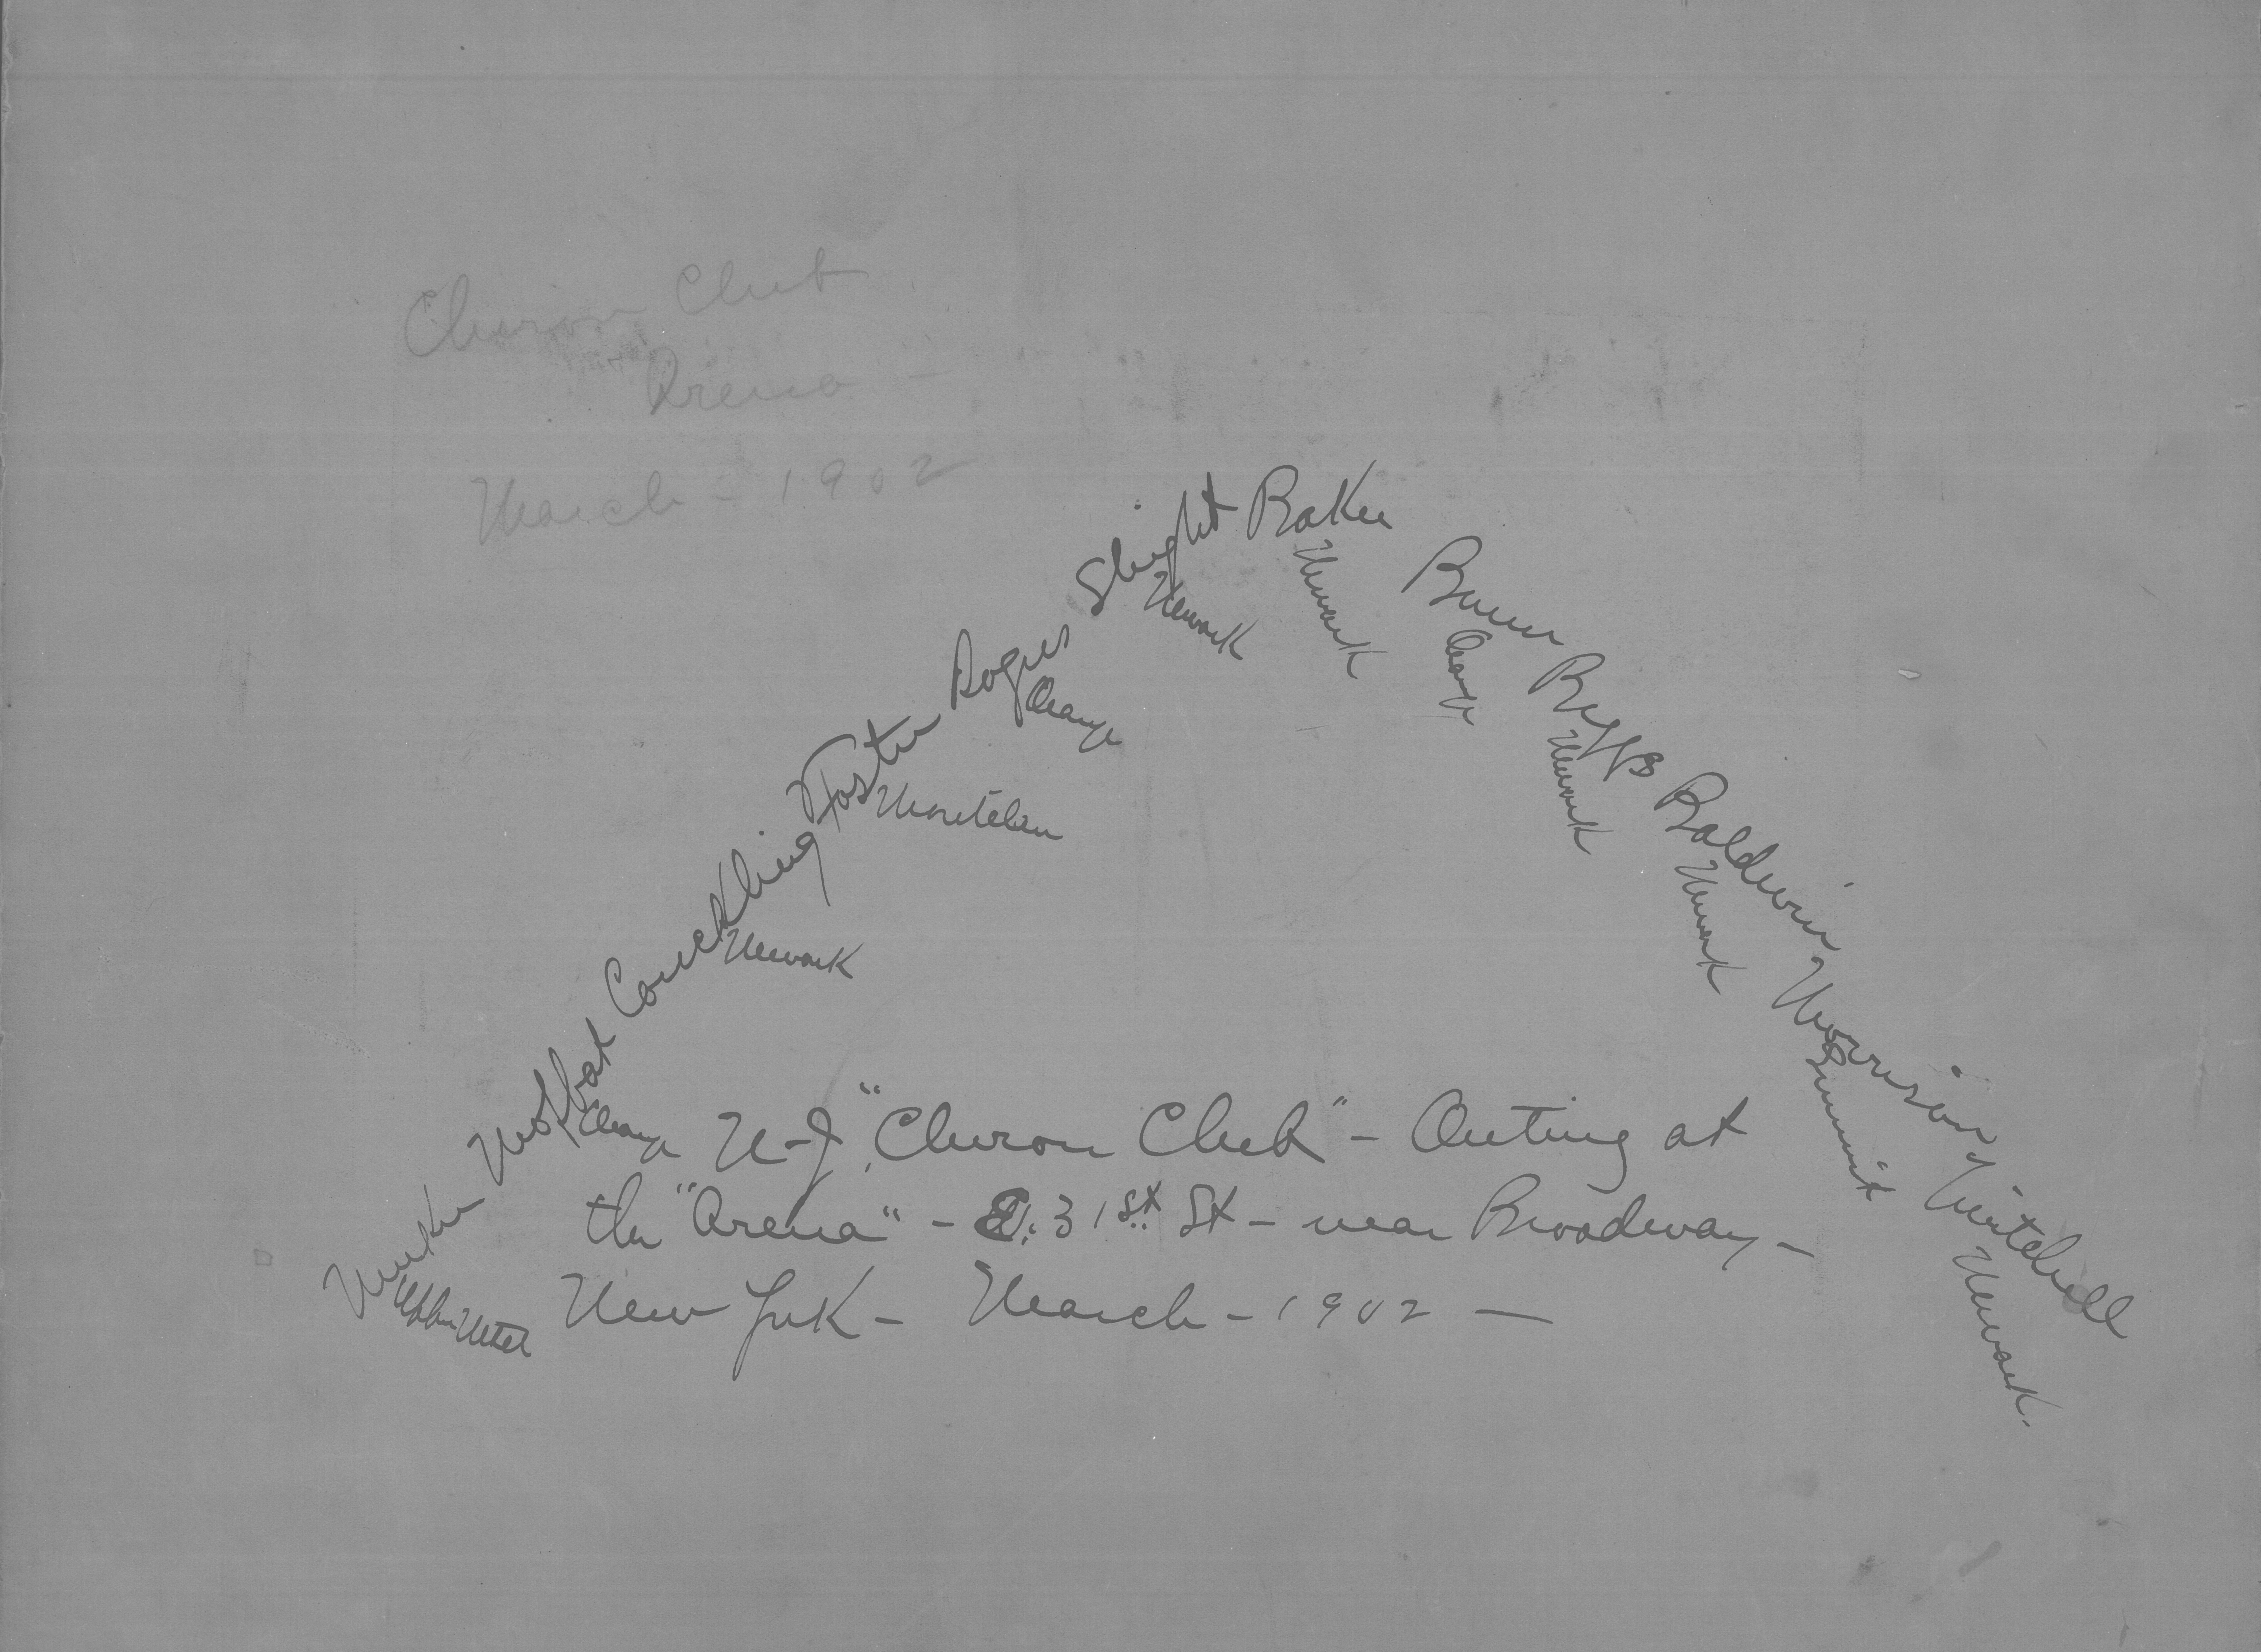 Churon Club
Arena -
March - 1902
Moffat
Orange
Conckling
Newark
Foster
Montclair
Rogers
Orange
Slight
Newark
Baker
Newark
Orange
Riggs
Newark
Baldwin
Newark
Morrison
Summit
Mitchell
Newark.
N-J. "Churon Club" - Outing at
the "Arena" - E. 31st St - near Broadway -
New York - March - 1902 -